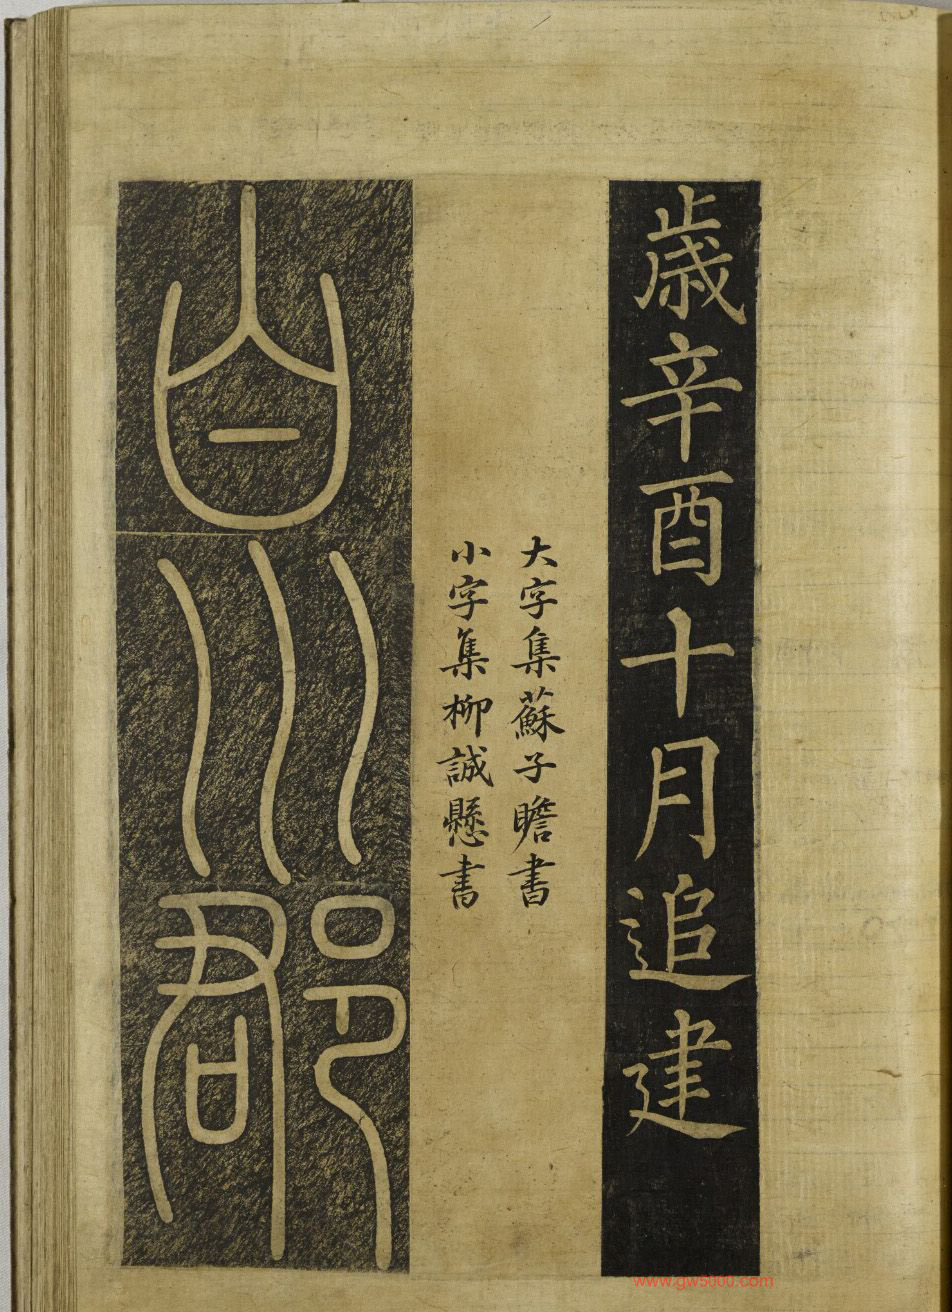 歳辛酉十月追建
大字集蘇子瞻書
小字集柳誠懸書
白川郡
www.gw5000.com